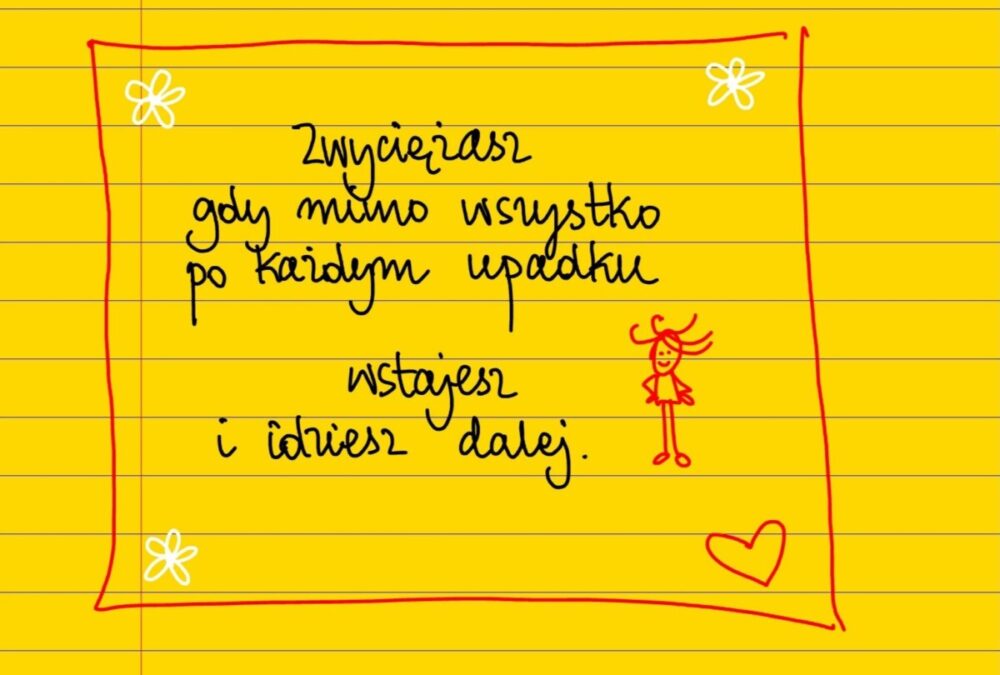 Zwyciężasz
gdy mimo wszystko
po każdym upadku
wstajesz
i idziesz dalej.